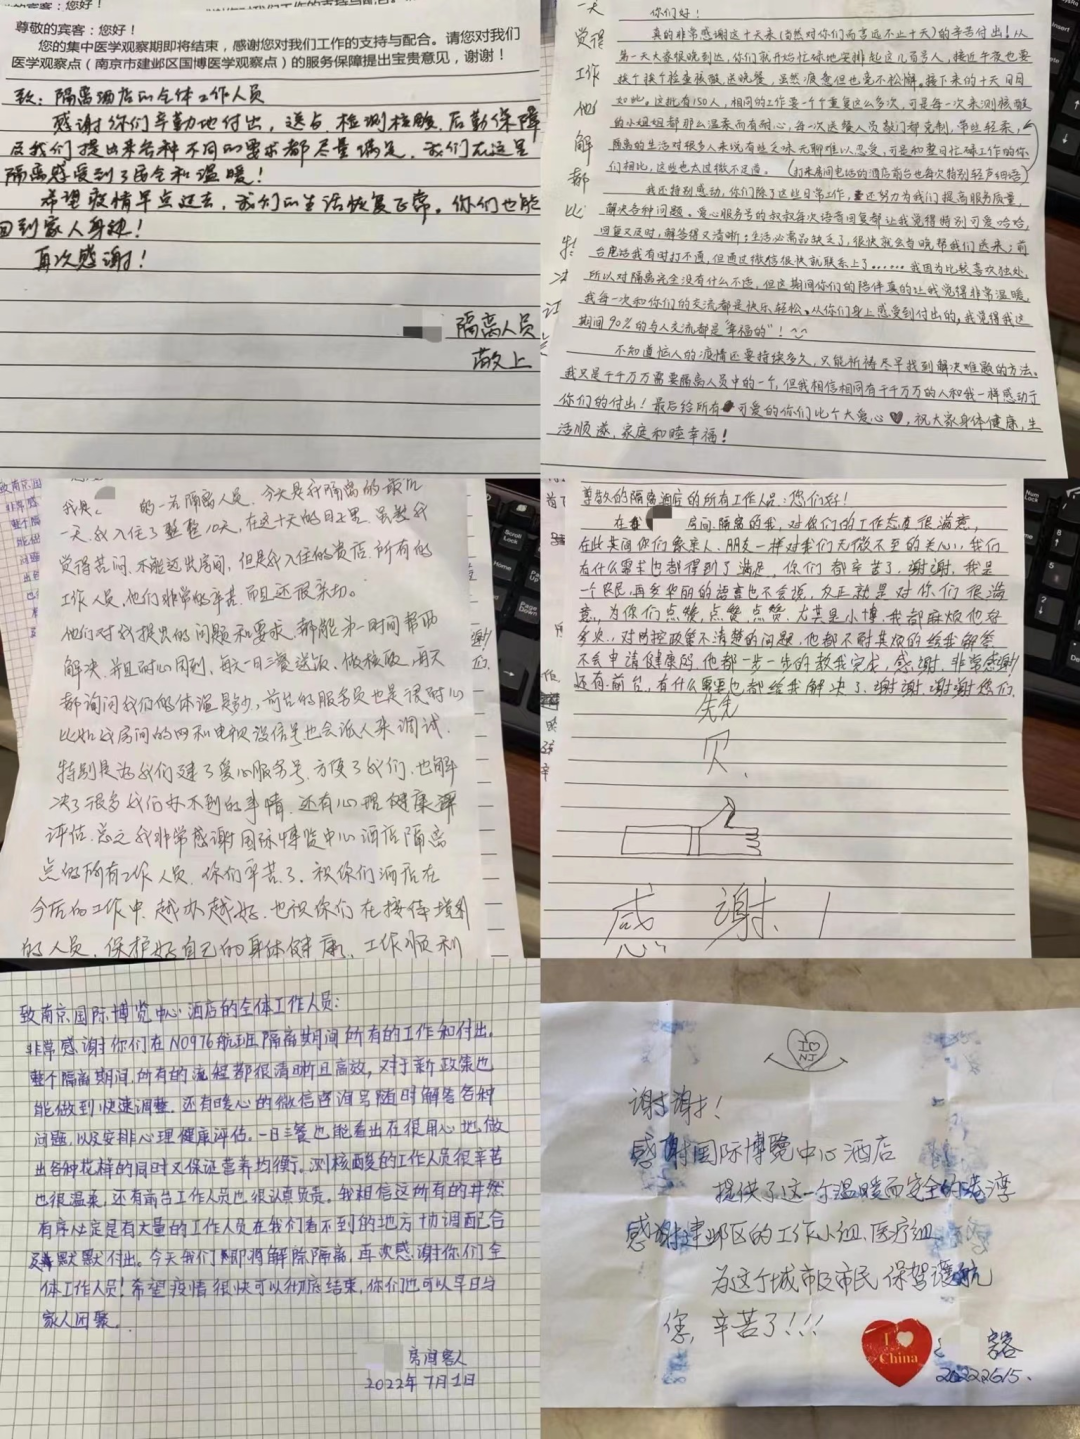 尊敬的宾客：您好！
您的集中医学观察期即将结束，感谢您对我们工作的支持与配合。请您对我们
医学观察点（南京市建邺区国博医学观察点）的服务保障提出宝贵意见，谢谢！
致：隔离酒店的全体工作人员
感谢你们辛勤地付出，送点、检测核酸、后勤保障
及我们提出来各种不同的要求都尽量满足，我们在这里
隔离感受到了安全和温暖！
希望疫情早点过去，我们的生活恢复正常。你们也能
回到家人身边！
再次感谢！
隔离人员
敬上
你们好！
真的非常感谢这十天来（当然对你们而言远不止十天）的辛苦付出！从
第一天大家很晚到达，你们就开始忙碌地安排起这几百号人，接近午夜也要
挨个挨个检查核酸、送晚餐，虽然疲惫但也毫不松懈。接下来的十天日日
如此。这批有150人，相同的工作要一个个重复这么多次，可是每一次来测核酸
的小姐姐都那么温柔而有耐心，每一次送餐人员敲门都克制、带些轻柔，
隔离的生活对很多人来说有些乏味无聊难以忍受，可是和整日忙碌工作的你
们相比，这些也太过微不足道。（打来房间电话的酒店前台也每次特别轻声细语）
我还特别感动，你们除了这些日常工作，还努力为我们提高服务质量，
解决各种问题。爱心服务号的叔叔每次语音回复都让我觉得特别可爱哈哈，
回复又及时，解答得又清晰；生活必需品缺乏了，很快就会当晚帮我们送来；前
台电话我有时打不通，但通过微信很快就联系上了……我因为比较喜欢独处，
所以对隔离完全没有什么不适，但这期间你们的陪伴真的让我觉得非常温暖，
我每一次和你们的交流都是快乐轻松、从你们身上感受到付出的，我觉得我这
期间90%的与人交流都是“幸福的”！
不知道恼人的疫情还要持续多久，只能祈祷尽早找到解决难题的方法。
我只是千千万万需要隔离人员中的一个，但我相信相同有千千万万的人和我一样感动于
你们的付出！最后给所有可爱的你们比个大爱心♥，祝大家身体健康，生
活顺遂，家庭和睦幸福！
我是 的一名隔离人员，今天是我隔离的最后
一天，我入住了整整10天，在这十天的日子里，虽然我
觉得苦闷，不能迈出房间，但是我入住的贵店，所有的
工作人员，他们非常的辛苦，而且还很亲切。
他们对我提出的问题和要求，都能第一时间帮助
解决，并且耐心周到，每天一日三餐送饭、做核酸，每天
都询问我们的体温是多少，前台的服务员也是很耐心
比如说房间的网和电视没信号也会派人来调试，
特别是为我们建了爱心服务号，方便了我们，也解
决了很多我们办不到的事情，还有心理健康评
评估。总之我非常感谢国际博览中心酒店隔离
点的所有工作人员，你们辛苦了，祝你们酒店在
今后的工作中越办越好，也祝你们在接待境外
的人员，保护好自己的身体健康，工作顺利
尊敬的隔离酒店的所有工作人员：您们好！
在 房间隔离的我，对你们的工作态度很满意，
在此其间你们象亲人、朋友一样对我们无微不至的关心，我们
有什么要求也都得到了满足，你们都辛苦了，谢谢，我是
一个农民，再多华丽的语言也不会说，反正就是对你们很满
意，为你们点赞，点赞，点赞，尤其是小博，我都麻烦他好
多次，对防控政策不清楚的问题，他都不耐其烦的给我解答，
不会申请健康码，他都一步一步的教我完成，感谢，非常感谢！
还有前台，有什么需要也都给我解决了，谢谢，谢谢您们，
感谢！
致南京国际博览中心酒店的全体工作人员：
非常感谢你们在NO976航班隔离期间所有的工作和付出。
整个隔离期间，所有的流程都很清晰且高效，对于新政策也
能做到快速调整，还有暖心的微信咨询号随时解答各种
问题，以及安排心理健康评估。一日三餐也能看出在很用心地做
出各种花样的同时又保证营养均衡。测核酸的工作人员很辛苦
也很温柔，还有前台工作人员也很认真负责。我相信这所有的井然
有序必定是有大量的工作人员在我们看不到的地方协调配合
及默默付出。今天我们即将解除隔离，再次感谢你们全
体工作人员！希望疫情很快可以彻底结束，你们也可以早日与
家人团聚。
房间客人
2022年7月1日
I ♡
NJ
谢谢！
感谢国际博览中心酒店
提供了这一个温暖而安全的港湾
感谢建邺区的工作小组、医疗组
为这个城市及市民保驾护航
您，辛苦了！！！
I ♥
China
房客
2022.6.15.